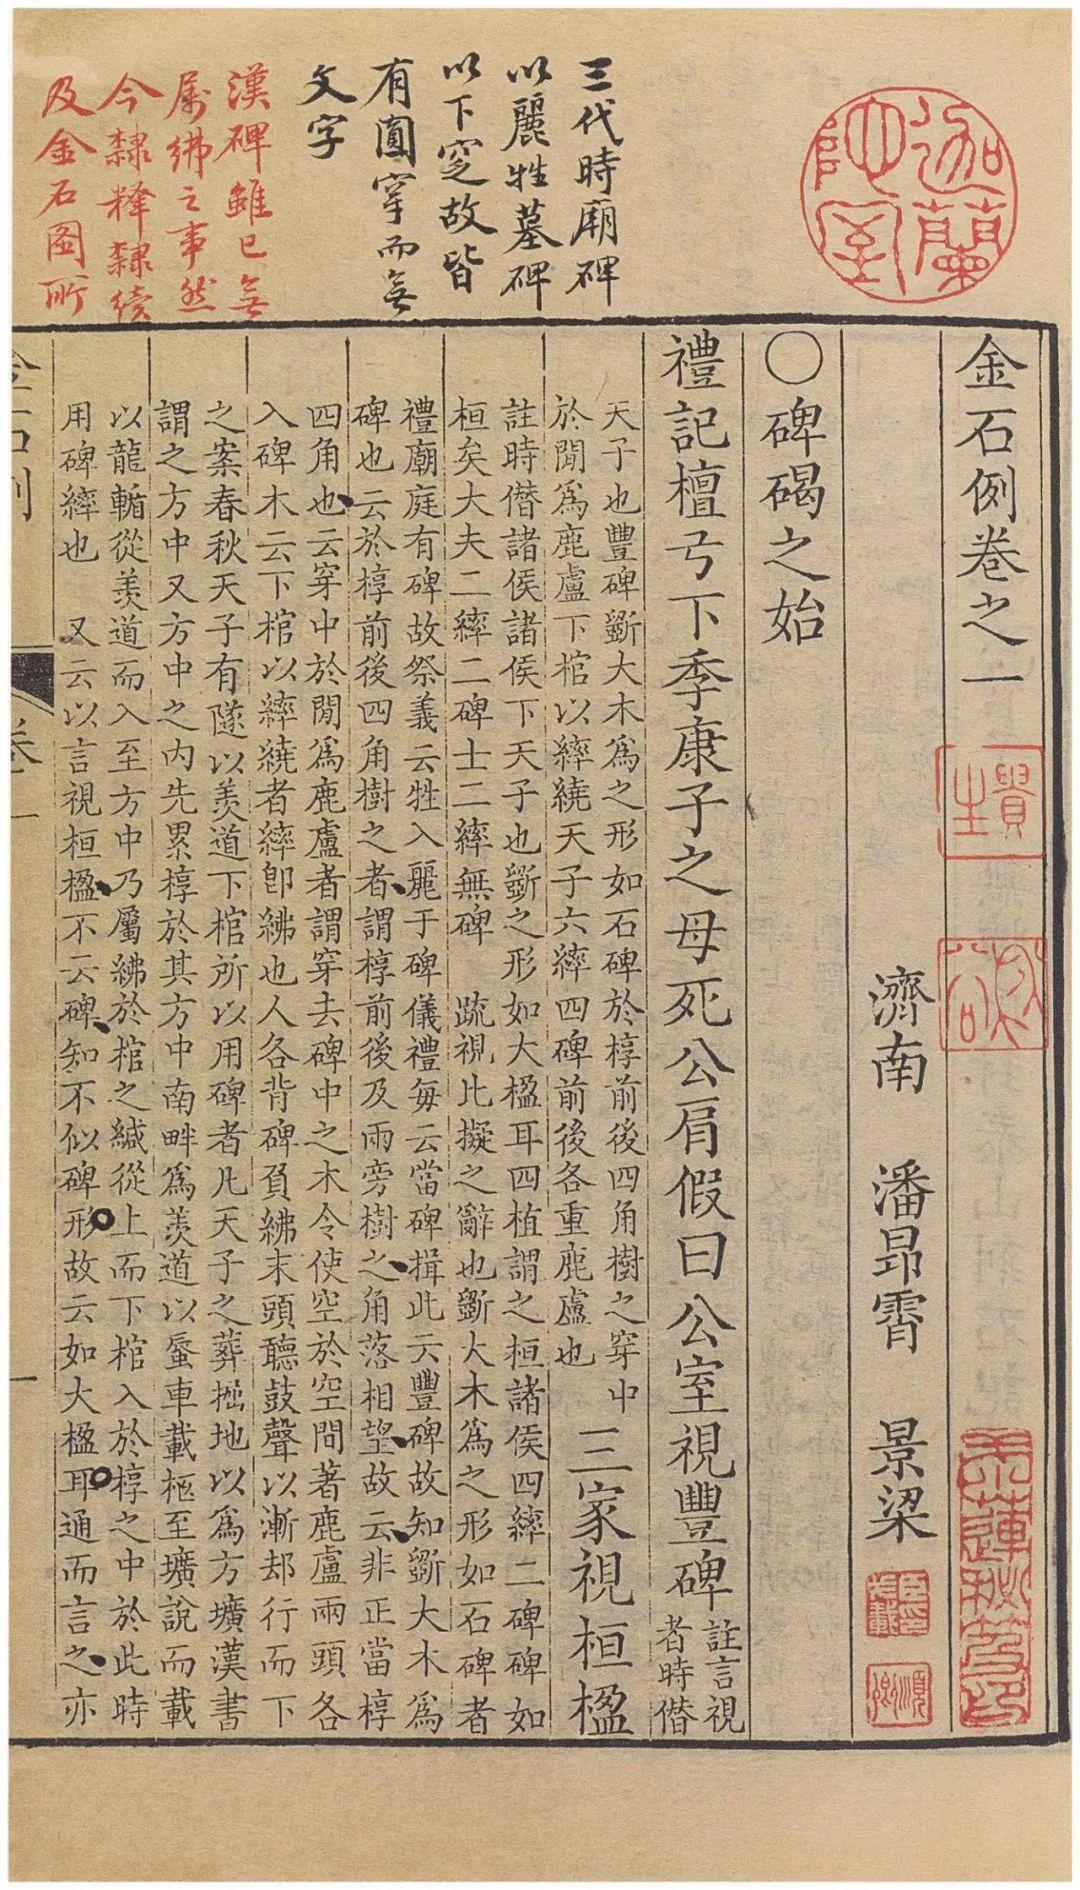 迦蘭陀室
三代時廟碑
以麗牲墓碑
以下窆故皆
有圓穿而無
文字
漢碑雖已無
属紼之事然
今隸釋隸續
及金石图所
金石例卷之一
濟南 潘昂霄 景梁
○碑碣之始
禮記檀弓下季康子之母死公肩假曰公室視豐碑
註言視
者時僭
天子也豐碑斵大木爲之形如石碑於椁前後四角樹之穿中
於閒爲鹿盧下棺以繂繞天子六繂四碑前後各重鹿盧也
三家視桓楹
註時僭諸侯諸侯下天子也斵之形如大楹耳四植謂之桓諸侯四繂二碑碑如
桓矣大夫二繂二碑士二繂無碑 疏視比擬之辭也斵大木爲之形如石碑者
禮廟庭有碑故祭義云牲入麗于碑儀禮每云當碑揖此云豐碑故知斵大木爲
碑也云於椁前後四角樹之者謂椁前後及兩旁樹之角落相望故云非正當椁
四角也云穿中於閒爲鹿盧者謂穿去碑中之木令使空於空間著鹿盧兩頭各
入碑木云下棺以繂繞者繂卽紼也人各背碑負紼末頭聽鼓聲以漸却行而下
之案春秋天子有隧以羨道下棺所以用碑者凡天子之葬掘地以爲方壙漢書
謂之方中又方中之內先累椁於其方中南畔爲羨道以蜃車載柩至壙說而載
以龍輴從羨道而入至方中乃屬紼於棺之緘從上而下棺入於椁之中於此時
用碑繂也 又云以言視桓楹不云碑知不似碑形故云如大楹耳通而言之亦